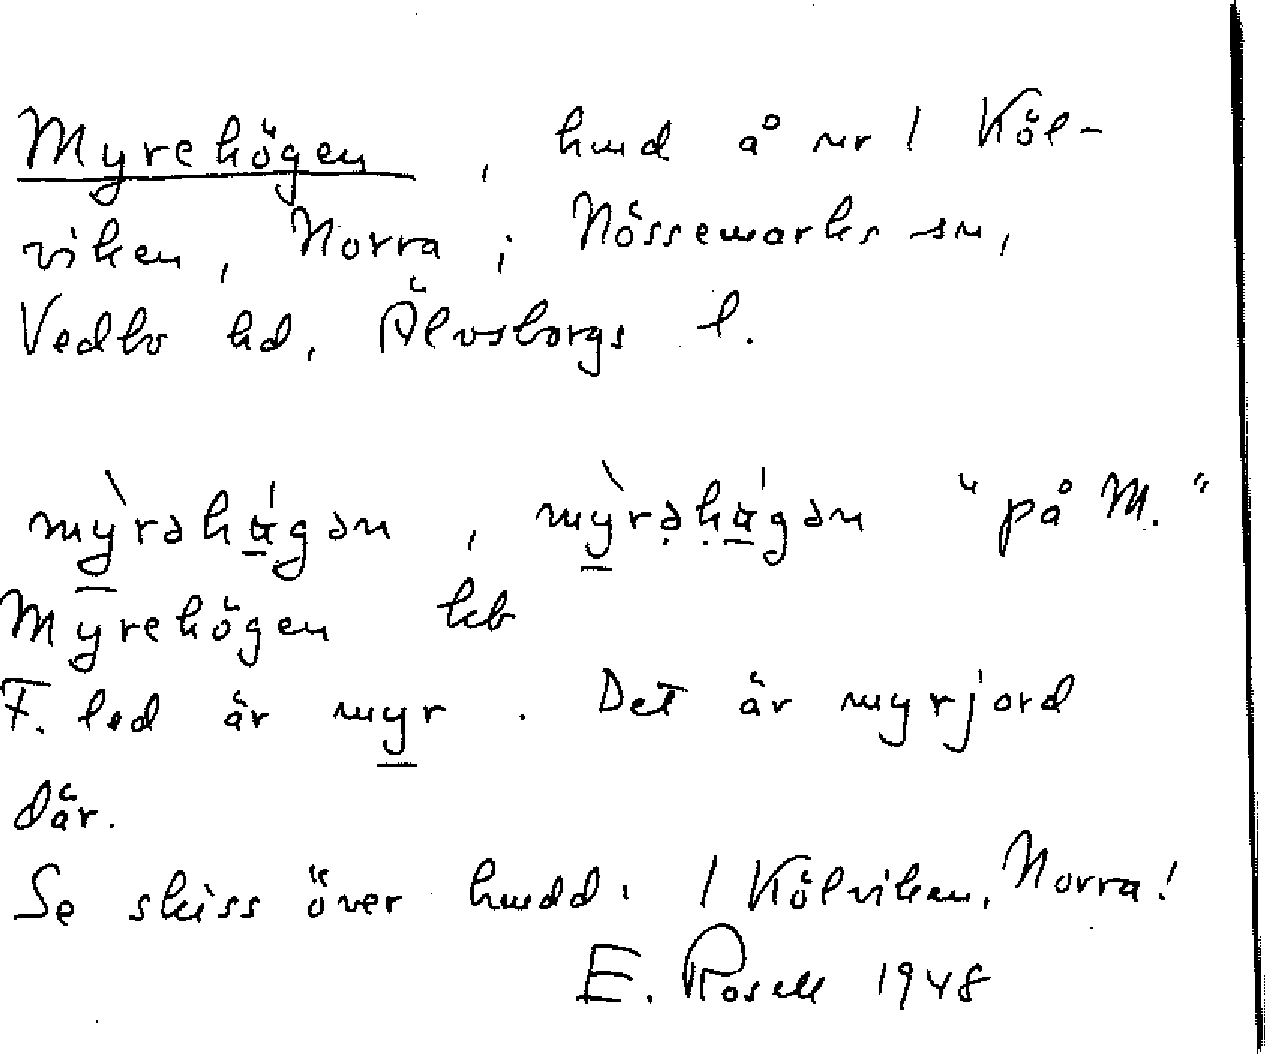 Myrehögen, hmd å nr 1 Köl-
viken, Norra; Nössemarks sn,
Vedbo hd, Älvsborgs l.
mỳrəhǿgən, mỳrəhǿgən "på M."
Myrehögen kb
F. led är myr. Det är myrjord
där.
Se skiss över hmdd. 1 Kölviken, Norra!
E. Rosell 1948